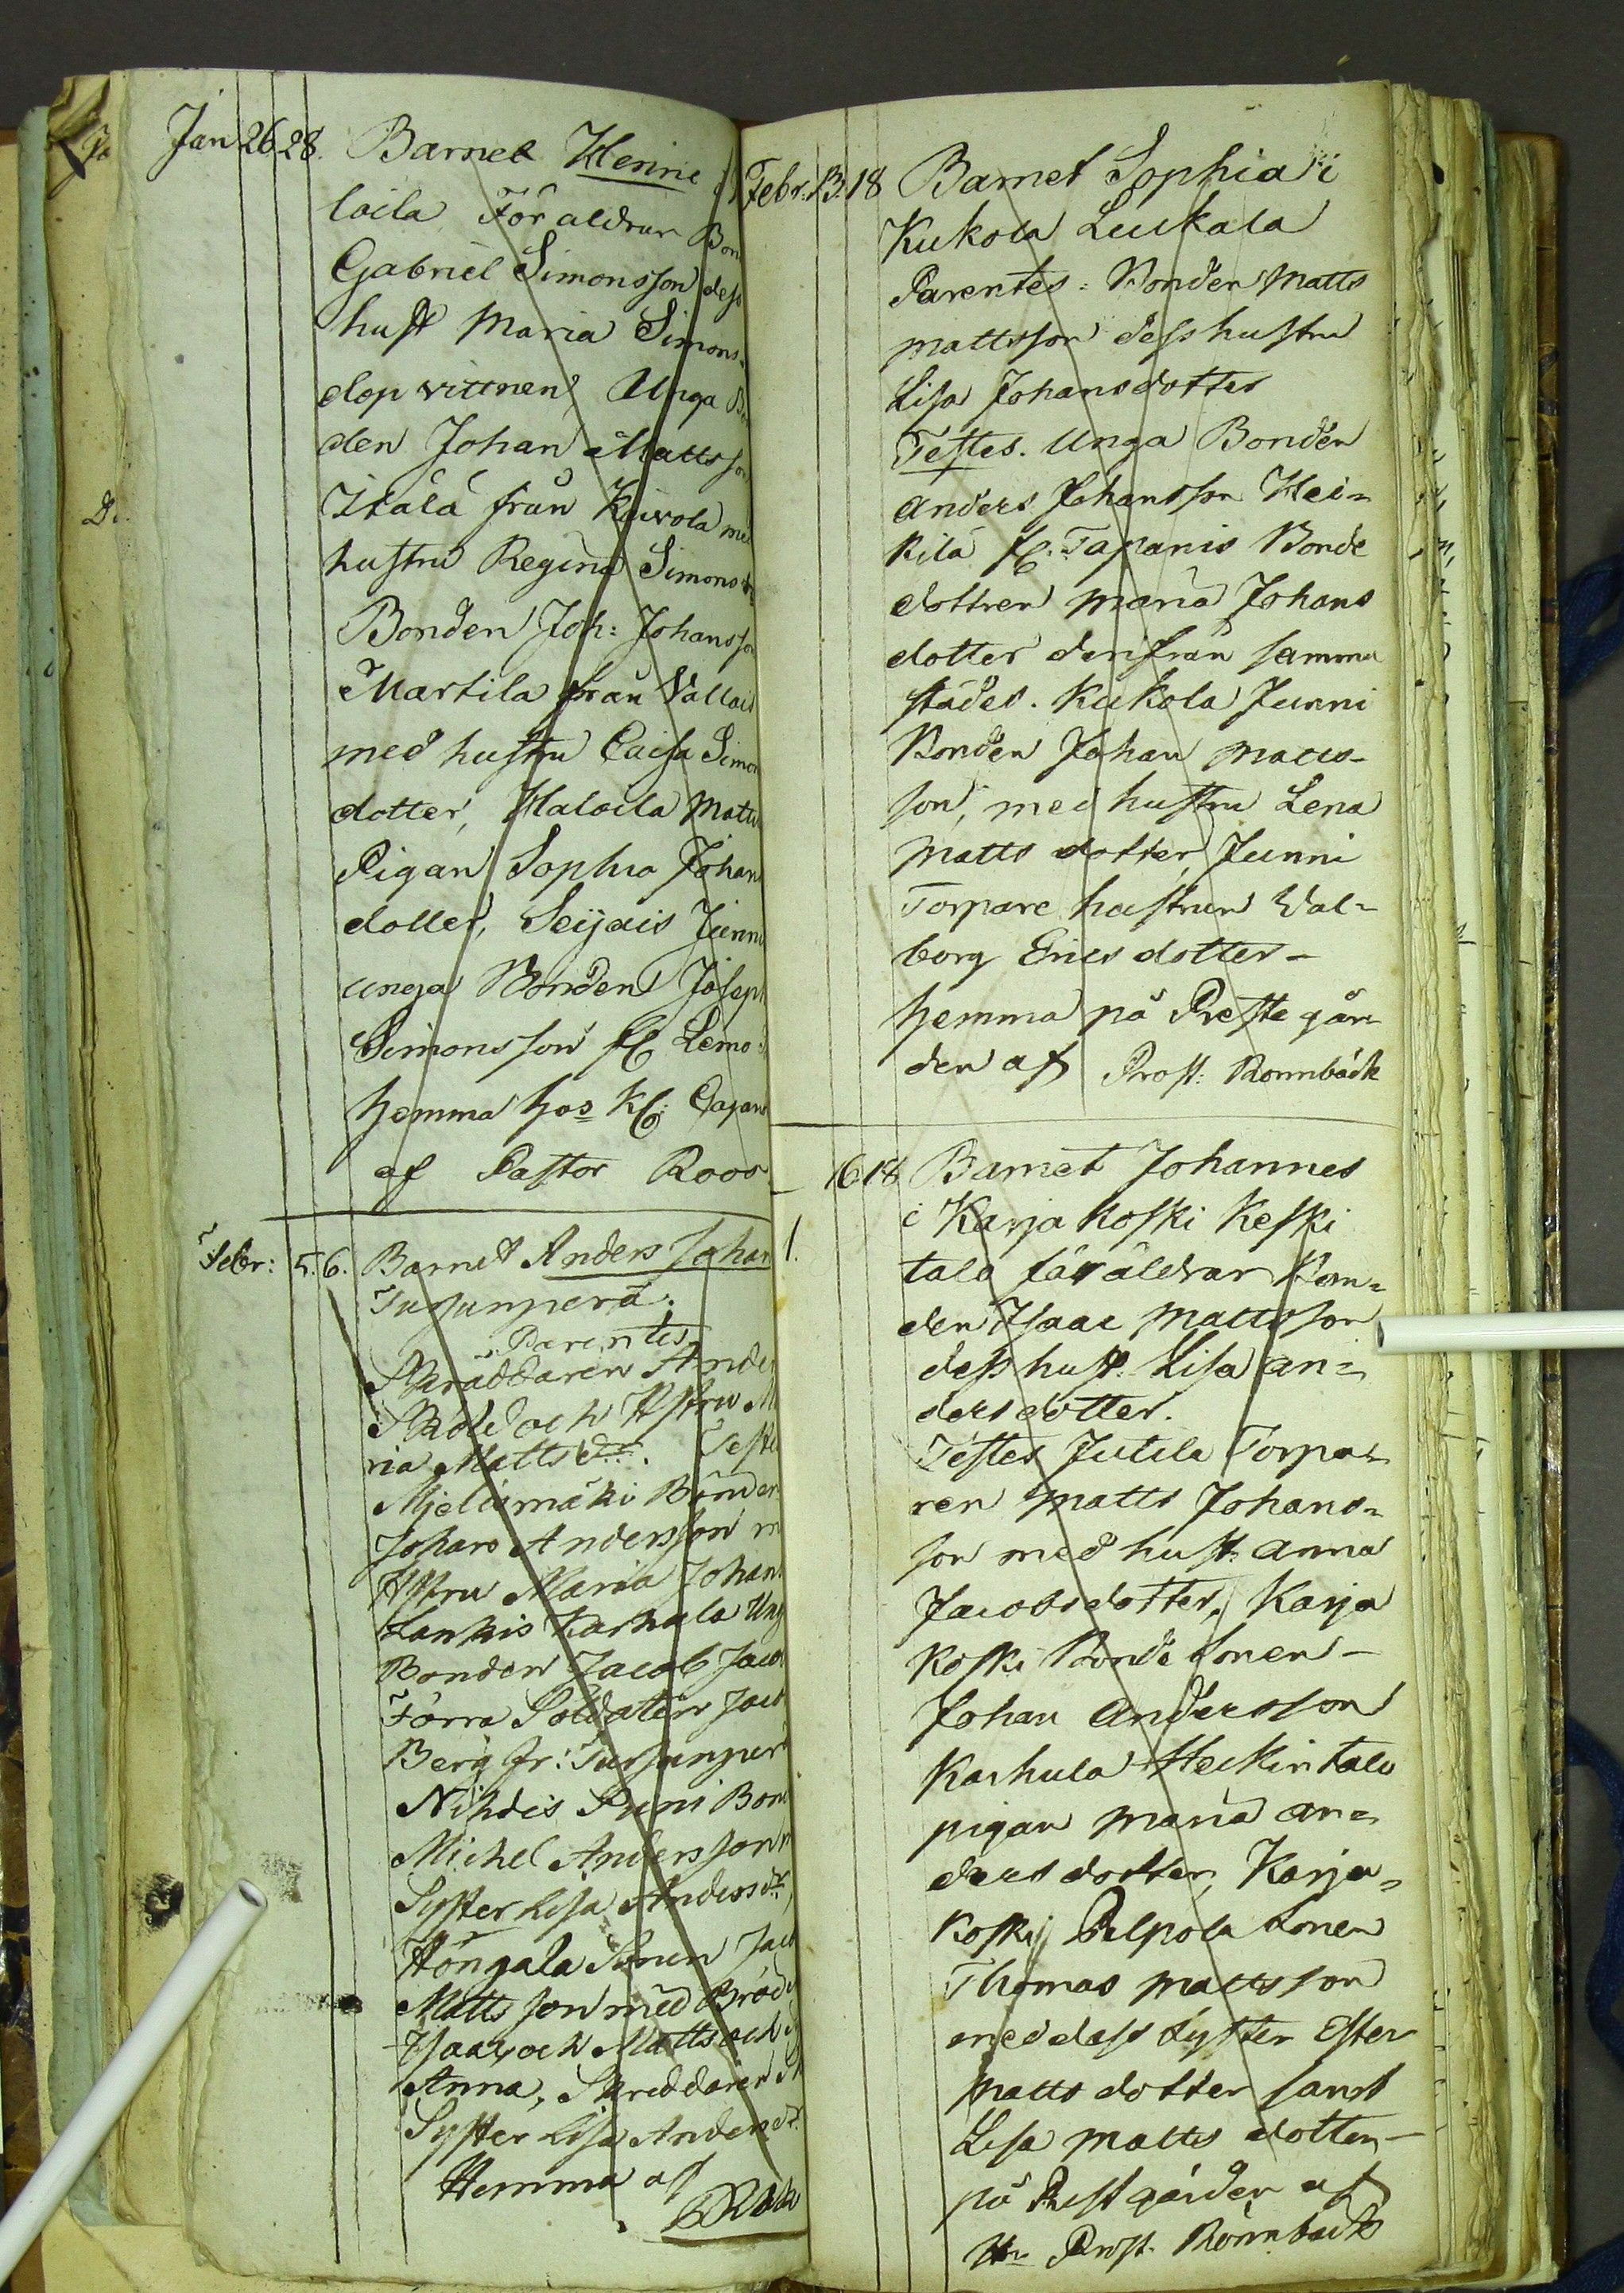 Jan 26 28. Barnet Henric
loila Föraldrar Bon
Gabriel Simonsson dess
hust Maria Simons-
dop vittnen Unga Bon
den Johan Mattsson
Itälä från Koivola med
hustru Regina Simonsd
Bonden Joh: Johansson
Martila från Vallais
med hustru Caisa Simon
dotter, Haloila Matts
Pigan Sophia Johans
dotter, Seijais Junni
unga Bonden Joseph
Simonsson fr Lemo
hemma hos Kl: Cajan
af Pastor Roos
Febr: 5. 6. Barnet Anders Johan
Tursunperä.
Parentes
Skräddaren Ander
Sköld och Hstru Ma
ria Matts dr. Teste
Mjelismäki Bonden
Johan Andersson m
Hstru Maria Johans
Lankis Karhula Ung
Bonden Jacob Jacob
Förra Soldaten Jacob
Berg fr: Tursunper
Nihdis Puni Bond
Michel Andersson m
Syster Lisa Andersdr,
Höngala Sonen Jacob
Mattsson med Bröder
Isaac och Matts och
Anna, Skreddaren Sk
Syster Lisa Andersdr.
Hemma af
Roos
Febr: 13. 18 Barnet Sophia i
Kukola Luukala
Parentes: Bonden Matts
Mattsson dess hustru
Lisa Johansdotter
Testes. Unga Bonden
Anders Johansson Hei-
kilä fr. Tapanis Bonde
dottren Maria Johans
dotter derifrån samma
städes. Kukola Junni
Bonden Johan Matts-
son, med hustru Lena
Matts dotter, Junni
Torpare hustrun Wal-
borg Ericsdotter -
hemma på Prestegår-
den af Prost: Rönnbäck
16 18 Barnet Johannes
1.
i Karjakoski Keski
talo föräldrar Bon-
den Isaac Mattsson
dess hust: Lisa An-
dersdotter.
Testes Jutila Torpa-
ren Matts Johans-
son med hust: Anna
Jacobsdotter, Karja
koski Bonde Sonen -
Johan Andersson
Karhula Heikintalo
pigan Maria An-
dersdotter, Karja-
koski Pelpola Sonen
Thomas Mattsson
med dess Syster Ester
Mattsdotter samt
Lisa Matts dotter -
på Prestgården af
Hr Prost. Rönnbäck